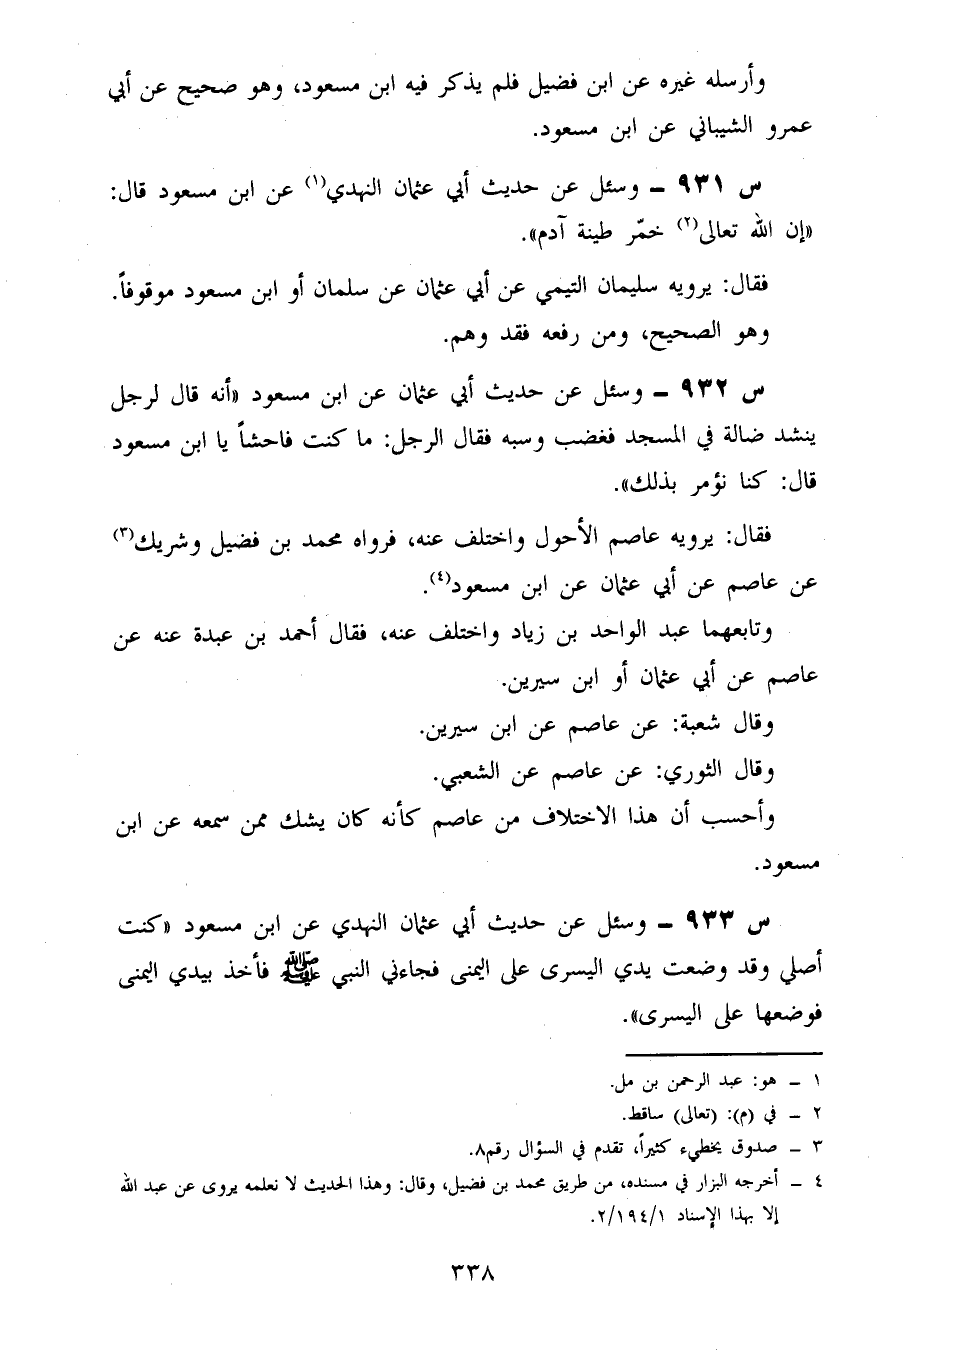 وأرسله غيره عن ابن فضيل فلم يذكر فيه ابن مسعود، وهو صحيح عن أبي
عمرو الشيباني عن ابن مسعود.
س ٩٣١ ـ وسئل عن حديث أبي عثمان النهدي(١) عن ابن مسعود قال:
«إن الله تعالى(٢) خمّر طينة آدم».
فقال: يرويه سليمان التيمي عن أبي عثمان عن سلمان أو ابن مسعود موقوفاً.
وهو الصحيح، ومن رفعه فقد وهم.
س ٩٣٢ ـ وسئل عن حديث أبي عثمان عن ابن مسعود «أنه قال لرجل
ينشد ضالة في المسجد فغضب وسبه فقال الرجل: ما كنت فاحشاً يا ابن مسعود
قال: كنا نؤمر بذلك».
فقال: يرويه عاصم الأحول واختلف عنه، فرواه محمد بن فضيل وشريك(٣)
عن عاصم عن أبي عثمان عن ابن مسعود(٤).
وتابعهما عبد الواحد بن زياد واختلف عنه، فقال أحمد بن عبدة عنه عن
عاصم عن أبي عثمان أو ابن سيرين.
وقال شعبة: عن عاصم عن ابن سيرين.
وقال الثوري: عن عاصم عن الشعبي.
وأحسب أن هذا الاختلاف من عاصم كأنه كان يشك ممن سمعه عن ابن
مسعود.
س ٩٣٣ ـ وسئل عن حديث أبي عثمان النهدي عن ابن مسعود «كنت
أصلي وقد وضعت يدي اليسرى على اليمنى فجاءني النبي ﷺ فأخذ بيدي اليمنى
فوضعها على اليسرى».
١ ـ هو: عبد الرحمن بن مل.
٢ ـ في (م): (تعالى) ساقط.
٣ ـ صدوق يخطيء كثيراً، تقدم في السؤال رقم٨.
٤ ـ أخرجه البزار في مسنده، من طريق محمد بن فضيل، وقال: وهذا الحديث لا نعلمه يروى عن عبد الله
إلا بهذا الإسناد ٢/١٩٤/١.
٣٣٨